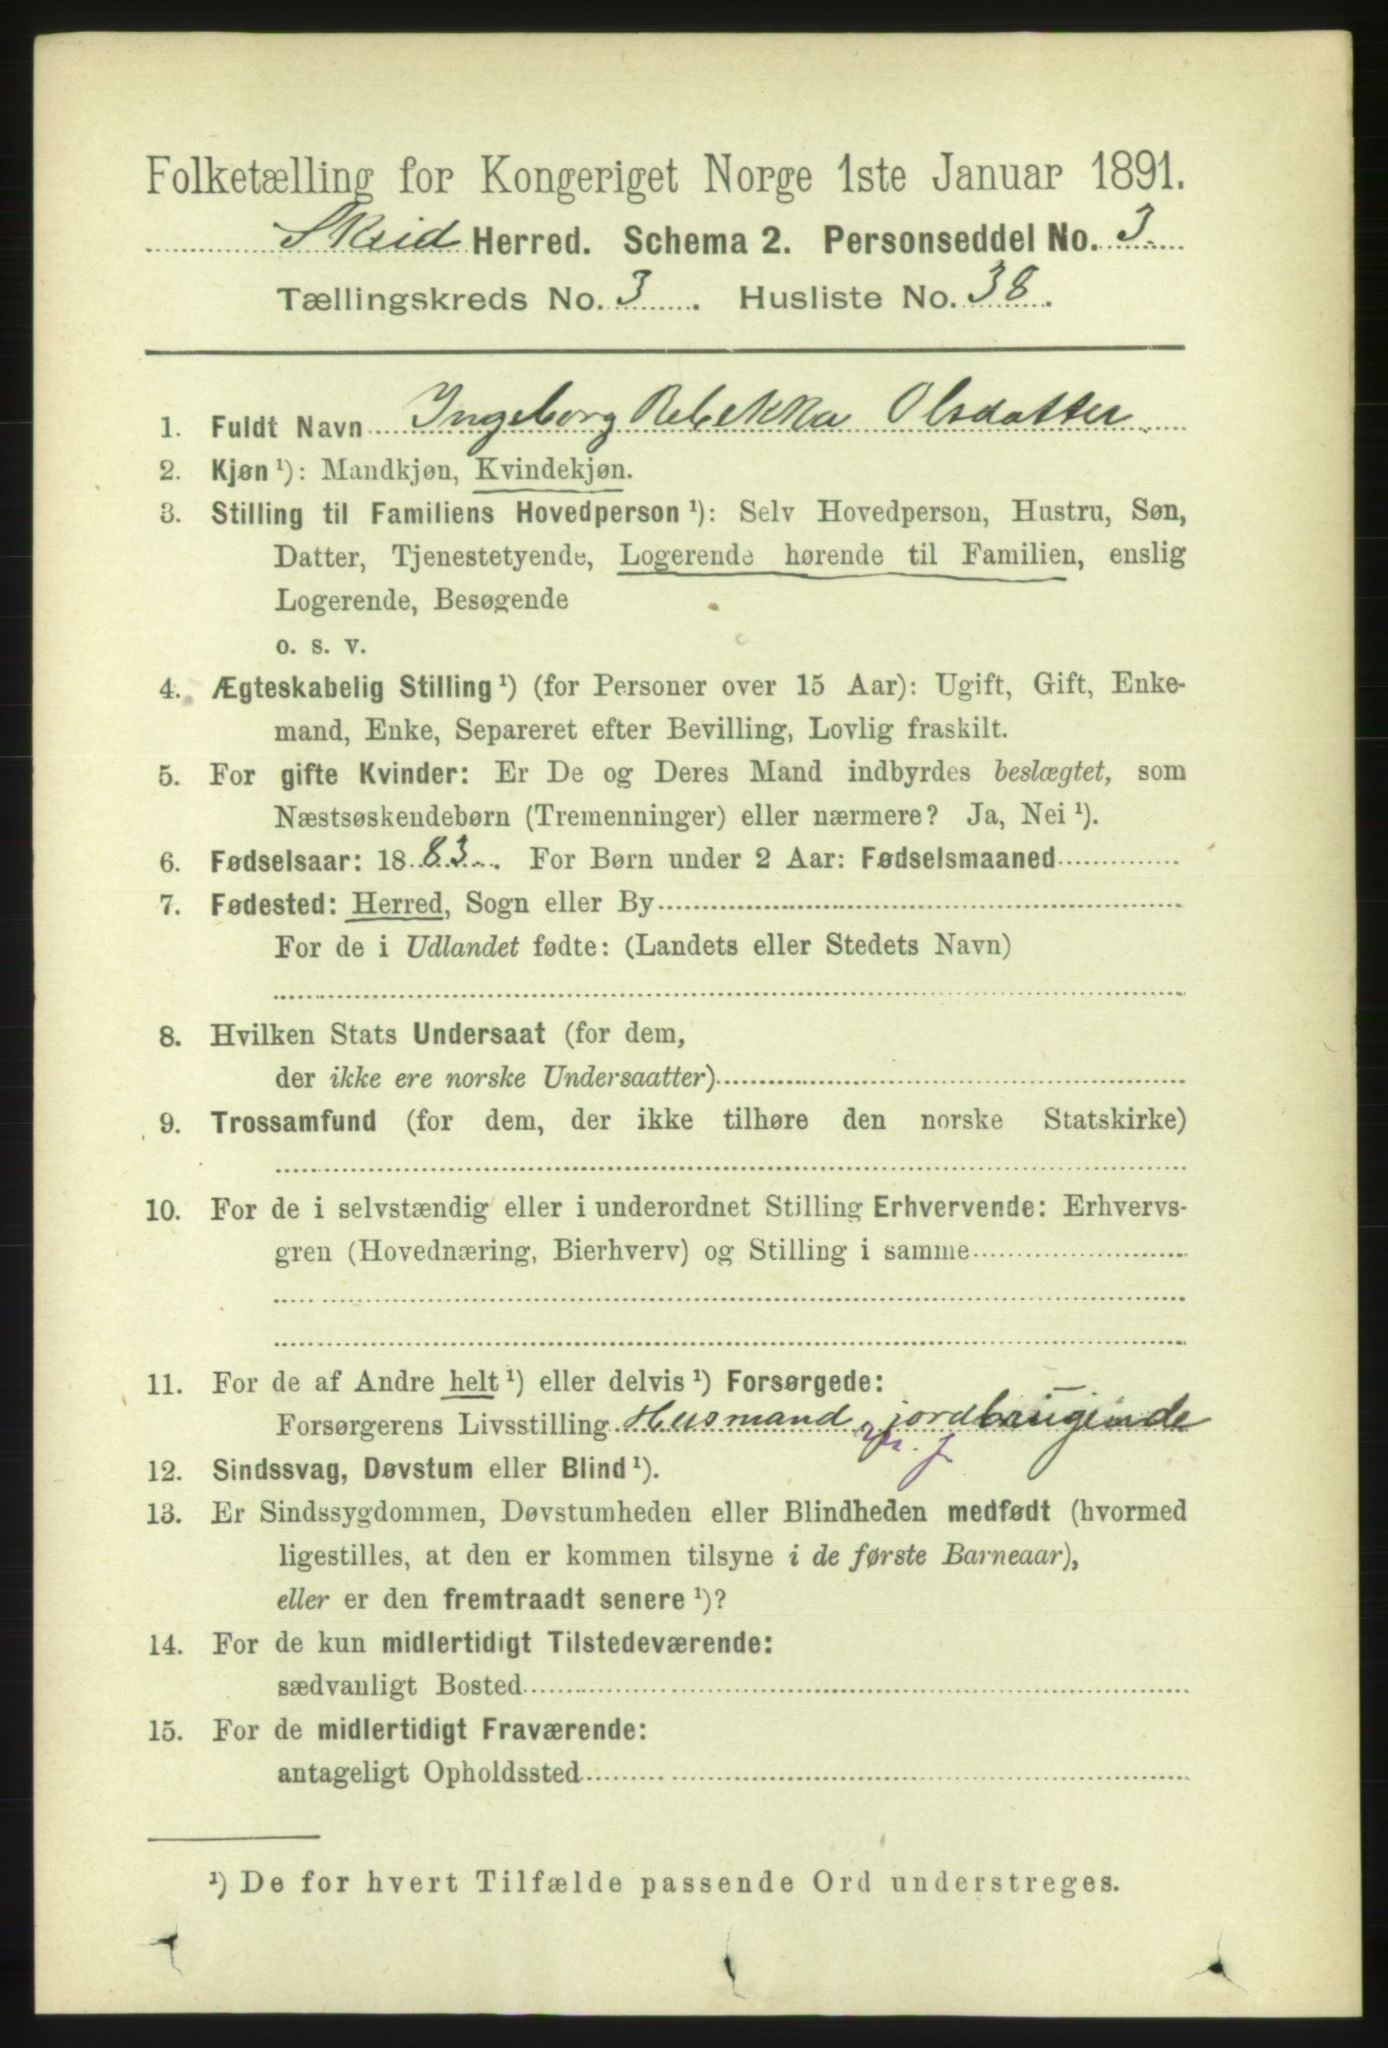 Folketælling for Kongeriget Norge 1ste Januar 1891.
Skeid Herred. Schema 2. Personseddel No. 3
Tællingskreds No. 3. Husliste No. 38.
1. Fuldt Navn Ingeborg Rebekka Olsdatter
2. Kjøn ¹): Mandkjøn, Kvindekjøn.
3. Stilling til Familiens Hovedperson ¹): Selv Hovedperson, Hustru, Søn,
Datter, Tjenestetyende, Logerende hørende til Familien, enslig
Logerende, Besøgende
o. s. v.
4. Ægteskabelig Stilling ¹) (for Personer over 15 Aar): Ugift, Gift, Enke-
mand, Enke, Separeret efter Bevilling, Lovlig fraskilt.
5. For gifte Kvinder: Er De og Deres Mand indbyrdes beslægtet, som
Næstsøskendebørn (Tremenninger) eller nærmere? Ja, Nei ¹).
6. Fødselsaar: 1883. For Børn under 2 Aar: Fødselsmaaned
7. Fødested: Herred, Sogn eller By
For de i Udlandet fødte: (Landets eller Stedets Navn)
8. Hvilken Stats Undersaat (for dem,
der ikke ere norske Undersaatter)
9. Trossamfund (for dem, der ikke tilhøre den norske Statskirke)
10. For de i selvstændig eller i underordnet Stilling Erhvervende: Erhvervs-
gren (Hovednæring, Bierhverv) og Stilling i samme
11. For de af Andre helt ¹) eller delvis ¹) Forsørgede:
Forsørgerens Livsstilling Husmand, jordbrugende
m. j
12. Sindssvag, Døvstum eller Blind ¹).
13. Er Sindssygdommen, Døvstumheden eller Blindheden medfødt (hvormed
ligestilles, at den er kommen tilsyne i de første Barneaar),
eller er den fremtraadt senere ¹)?
14. For de kun midlertidigt Tilstedeværende:
sædvanligt Bosted
15. For de midlertidigt Fraværende:
antageligt Opholdssted
¹) De for hvert Tilfælde passende Ord understreges.